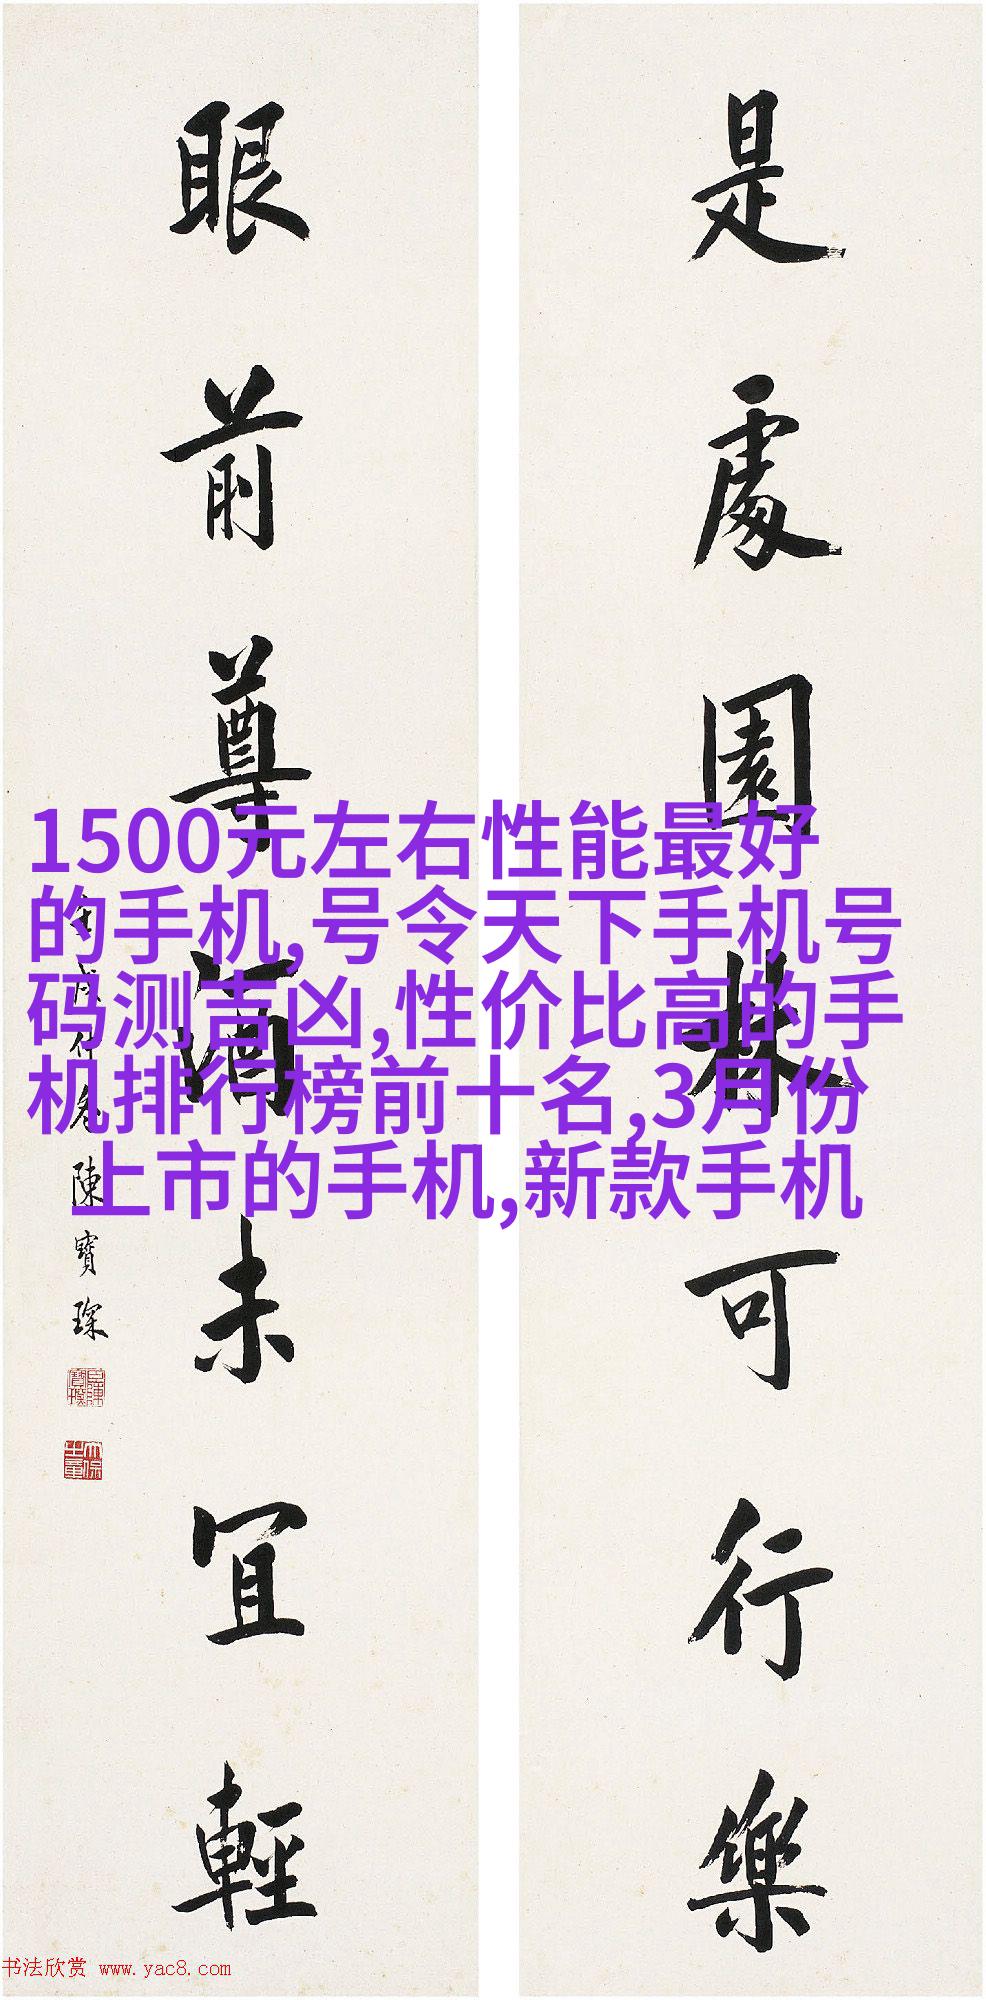 是處園林可行樂
眼前尊酒未宜輕
陳寶琛
1500元左右性能最好
的手机,号令天下手机号
码测吉凶,性价比高的手
机排行榜前十名,3月份
上市的手机,新款手机
书法欣赏 www.yac8.com